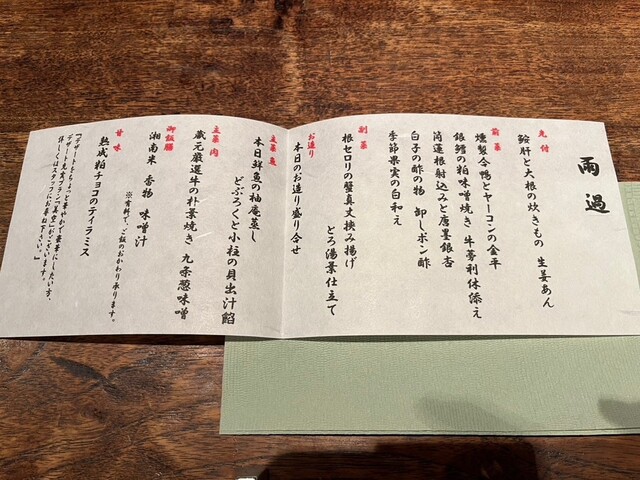 雨過
先付
鮟肝と大根の炊きもの 生姜あん
前菜
燻製合鴨とヤーコンの金平
銀鱈の粕味噌焼き 牛蒡利休添え
筒蓮根射込みと唐墨銀杏
白子の酢の物 卸しポン酢
季節果実の白和え
副菜
根セロリの蟹真丈挟み揚げ
とろ湯葉仕立て
お造り
本日のお造り盛り合せ
主菜魚
本日鮮魚の柚庵蒸し
どぶろくと小柱の貝出汁餡
主菜肉
蔵元厳選牛の朴葉焼き 九条葱味噌
御飯膳
湘南米 香物 味噌汁
※有料で、ご飯のおかわり承ります。
甘味
熟成粕チョコのティラミス
「デザートをちょっと華やかで豪華にしたい方、
デザート充実プラン「美空」がございます。
詳しくはスタッフにお尋ね下さい。」